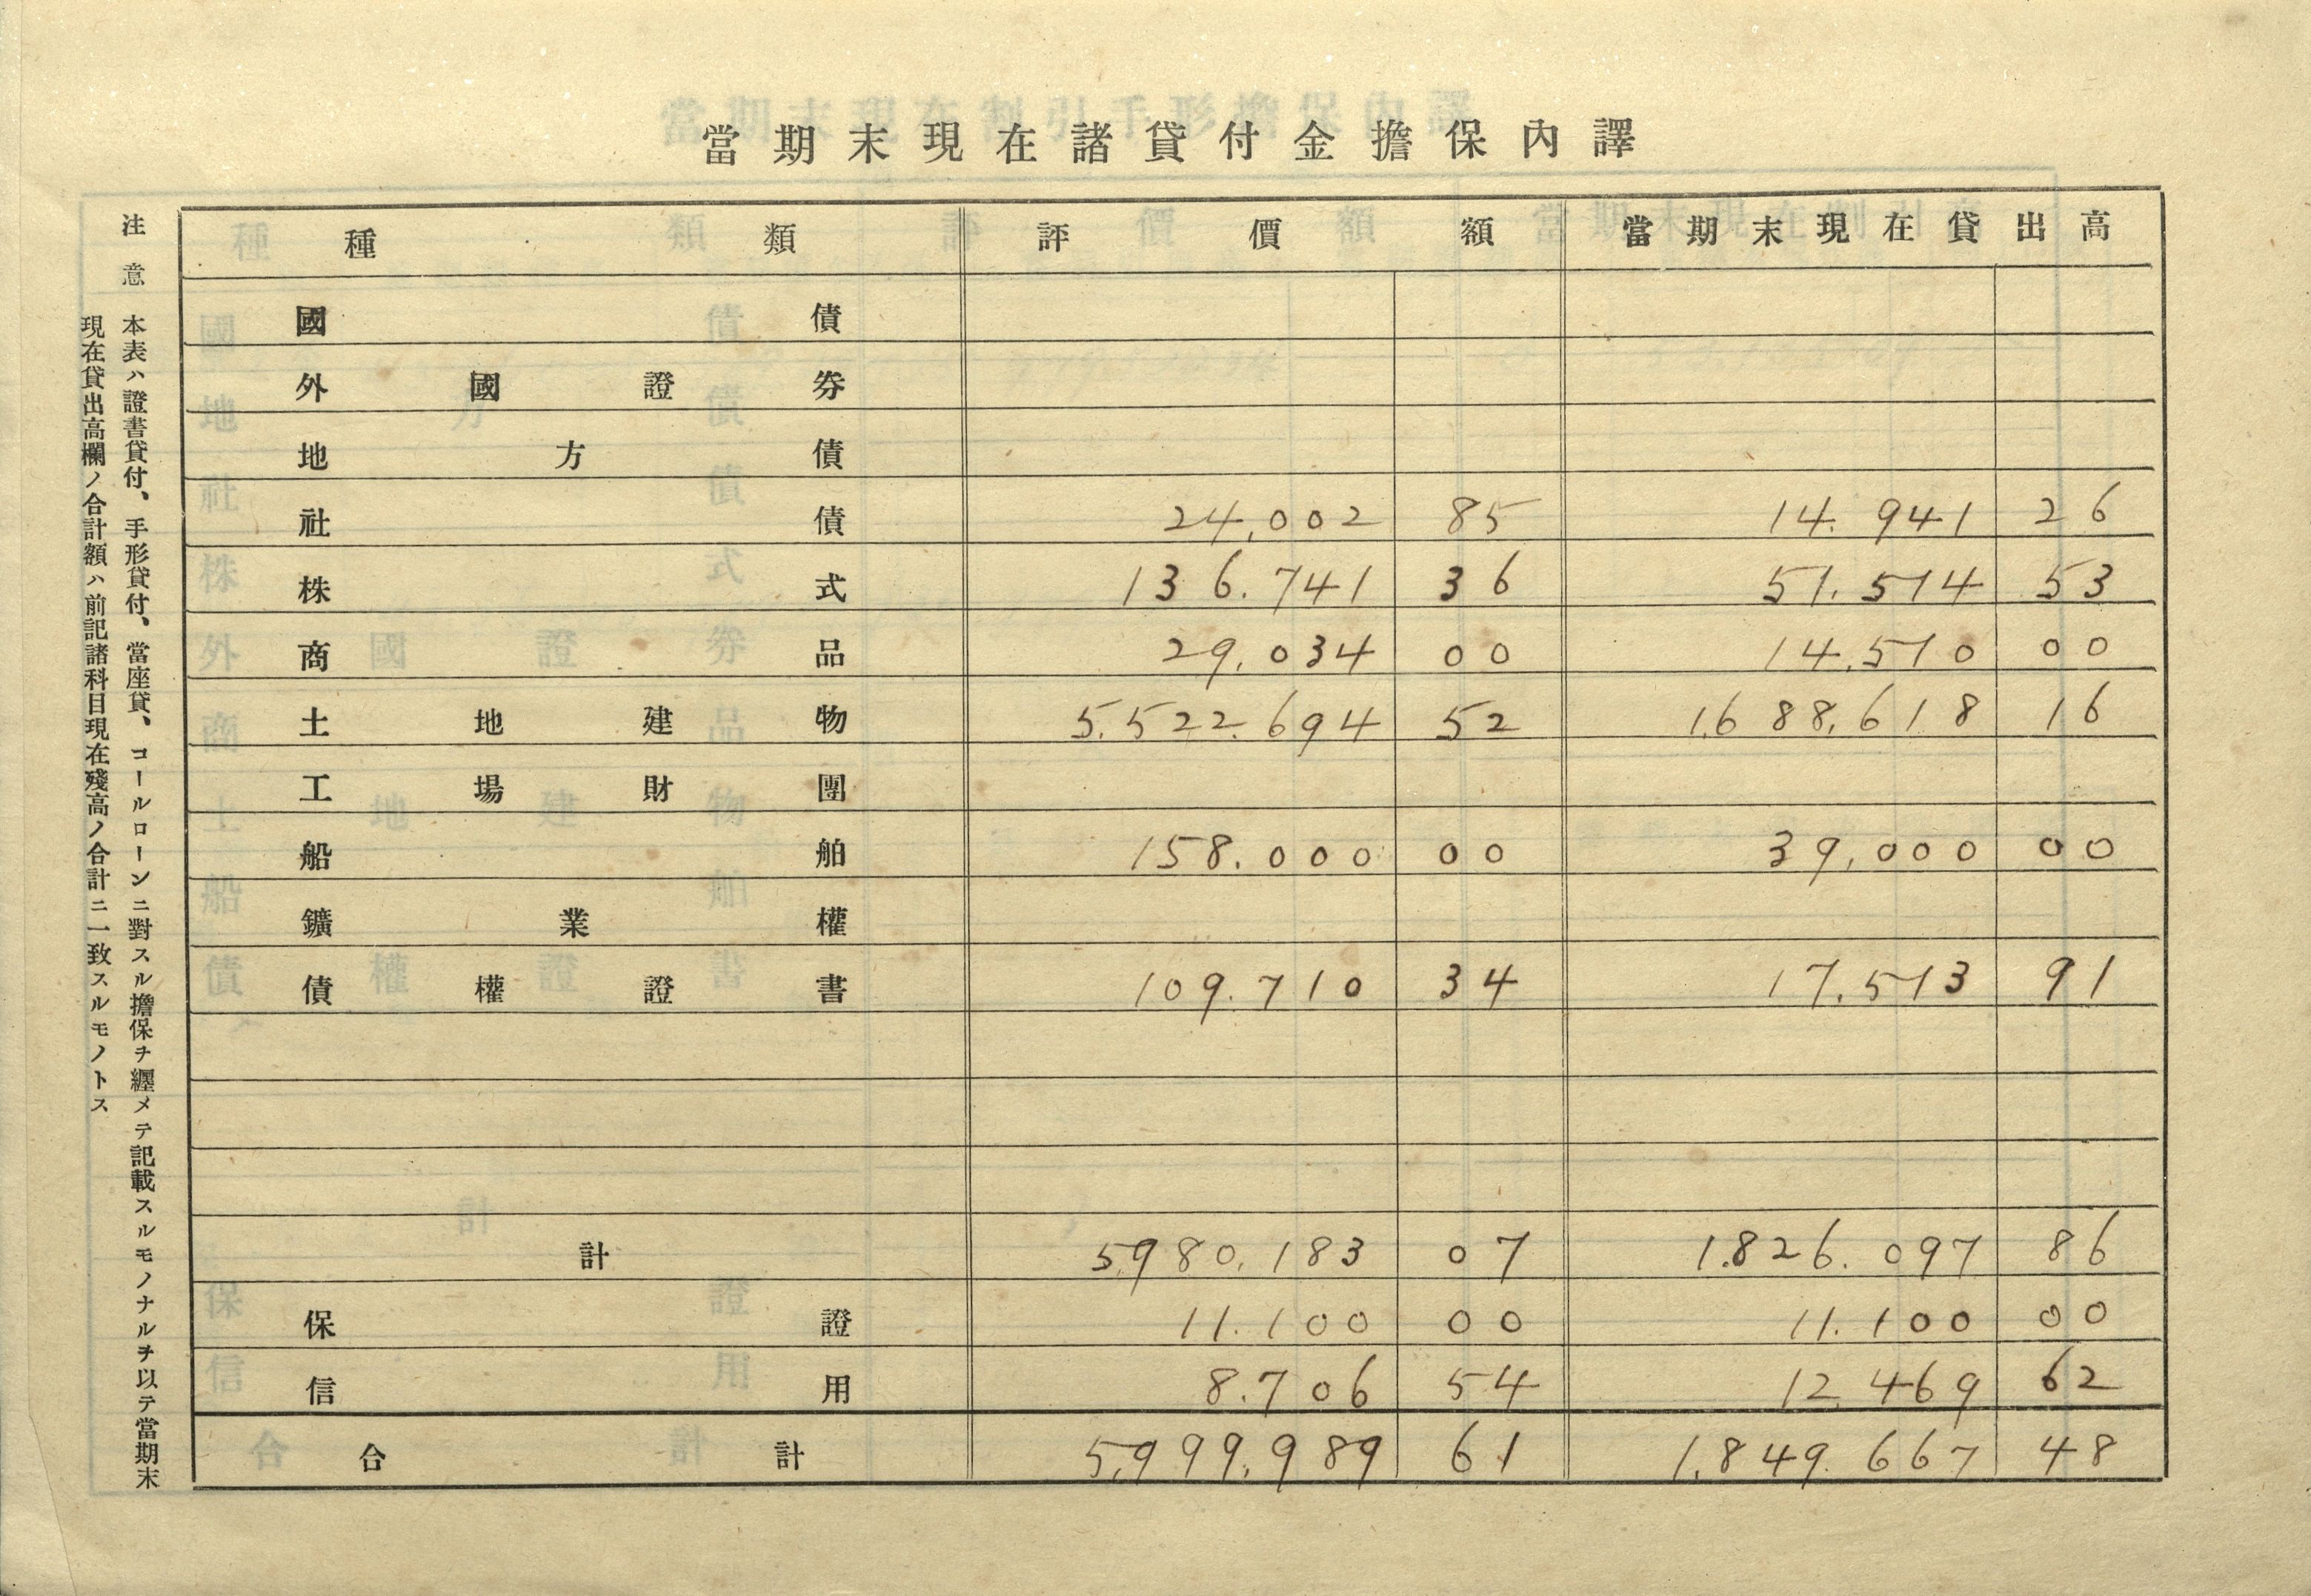 當期末現在諸貸付金擔保內譯
種類 評價額 當期末現在貸出高
國債
外國證券
地方債
社債 24,002 85 14.941 26
株式 136.741 36 51.514 53
商品 29.034 00 14.510 00
土地建物 5.522.694 52 1.688.618 16
工場財團
船舶 158.000 00 39,000 00
鑛業權
債權證書 109.710 34 17.513 91
計 5,980.183 07 1.826.097 86
保證 11.100 00 11.100 00
信用 8.706 54 12.469 62
合計 5,999,989 61 1.849.667 48
注意
本表ハ證書貸付、手形貸付、當座貸、コールローンニ對スル擔保ヲ纒メテ記載スルモノナルヲ以テ當期末
現在貸出高欄ノ合計額ハ前記諸科目現在殘高ノ合計ニ一致スルモノトス